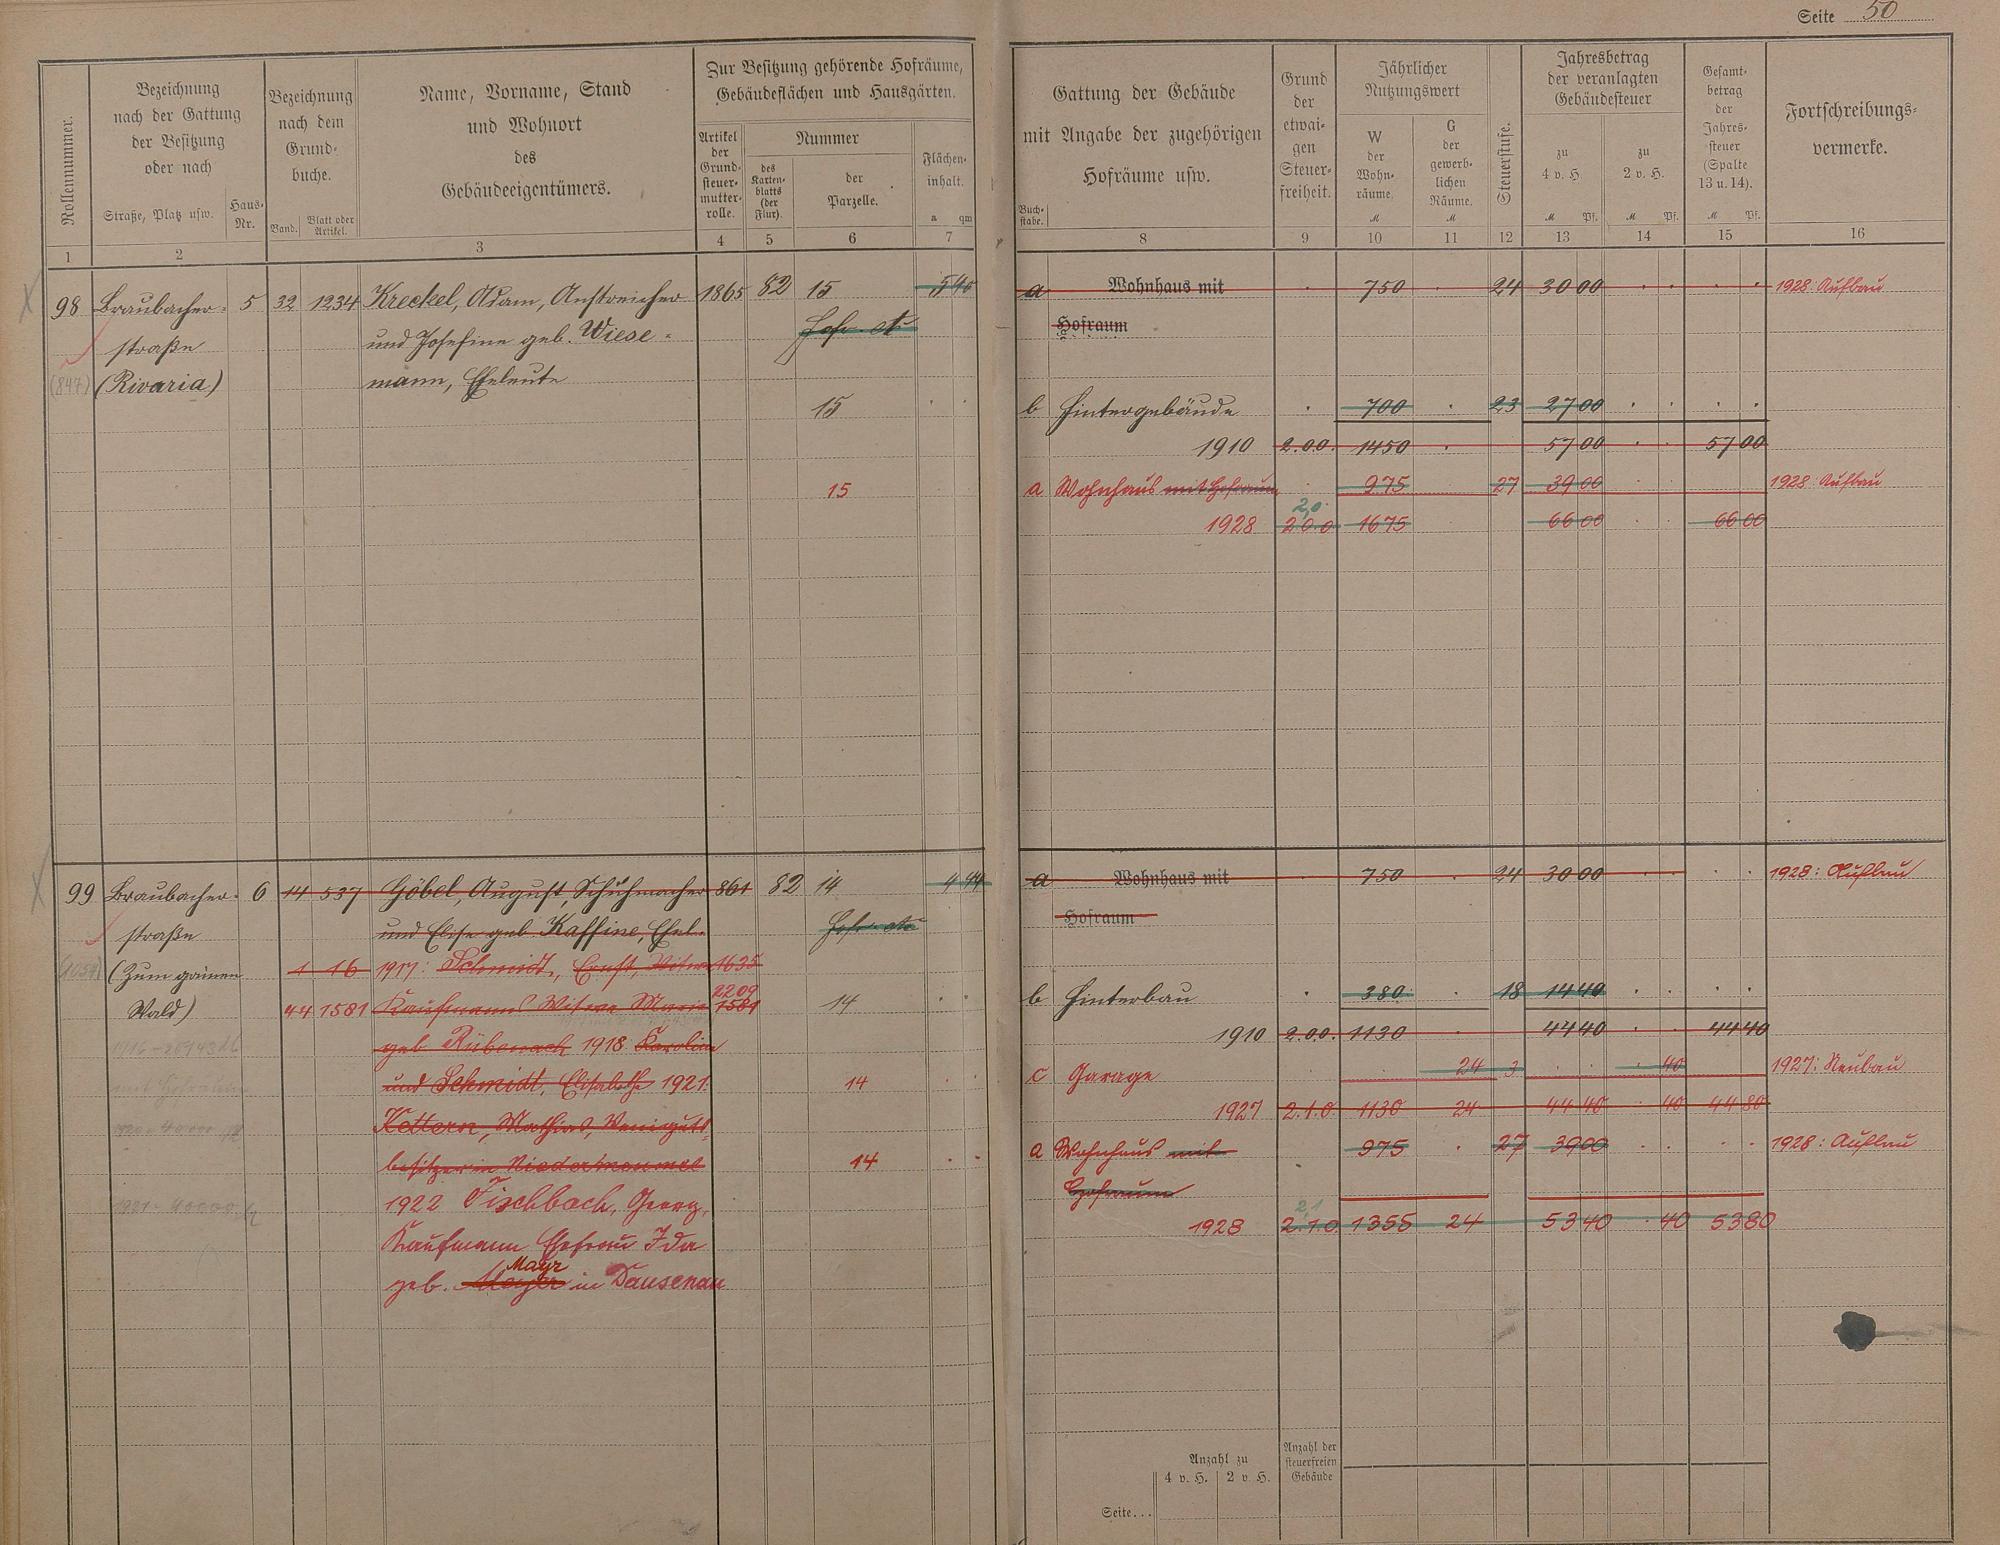 Seite 50
Rollennummer.
Bezeichnung
nach der Gattung
der Besitzung
oder nach
Straße, Platz usw.
Haus-
Nr.
Bezeichnung
nach dem
Grund-
buche.
Band.
Blatt oder
Artikel.
Name, Vorname, Stand
und Wohnort
des
Gebäudeeigentümers.
Zur Besitzung gehörende Hofräume,
Gebäudeflächen und Hausgärten.
Artikel
der
Grund-
steuer-
mutter-
rolle.
Nummer
des
Karten-
blatts
(der
Flur).
der
Parzelle.
Flächen-
inhalt.
a qm
Gattung der Gebäude
mit Angabe der zugehörigen
Hofräume usw.
Buch-
stabe.
Grund
der
etwai-
gen
Steuer-
freiheit.
Jährlicher
Nutzungswert
W
der
Wohn-
räume.
M
G
der
gewerb-
lichen
Räume.
M
Steuerstufe.
Jahresbetrag
der veranlagten
Gebäudesteuer
zu
4 v. H.
M Pf.
zu
2 v. H.
M Pf.
Gesamt-
betrag
der
Jahres-
steuer
(Spalte
13 u. 14).
M Pf.
Fortschreibungs-
vermerke.
1 2 3 4 5 6 7 8 9 10 11 12 13 14 15 16
98 Braubacher- 5 32 1234 Kreckel, Adam, Anstreicher 1865 82 15 5 40 a Wohnhaus mit 750 24 30 00 1928: Aufbau
straße und Josefine geb. Wiese- Hofr. Hofraum
(847) (Rivaria) mann, Eheleute
15 b Hintergebäude 700 23 27 00
1910 2.0.0. 1450 57 00 57 00
15 a Wohnhaus mit Hofraum 975 27 39 00 1928: Aufbau
2,0
1928 2.0.0. 1675 66 00 66 00
99 Braubacher- 6 14 537 Göbel, August, Schuhmacher 861 82 14 4 44 a Wohnhaus mit 750 24 30 00 1928: Aufbau
straße und Elise geb. Kaffine, Ehel. Hofr. Hofraum
(Zum grünen 1 16 1917: Schmidt, Ernst, Witwe 1635
2209
Wald) 44 1581 Kaufmanns Witwe Maria 1581 14 b Hinterbau 380 18 14 40
geb. Rübenach 1918 Karolina 1910 2.0.0. 1130 44 40 44 40
und Schmidt, Elisabeth 1921. 14 c Garage 24 3 40 1927: Neubau
Kettern, Mathias, Weinguts- 1927 2.1.0. 1130 24 44 40 40 44 80
besitzer in 14 a Wohnhaus mit 975 27 39 00 1928: Aufbau
1922 Fischbach, Georg, Hofraum
2,1
Kaufmann Ehefrau Ida 1928 2.1.0. 1355 24 53 40 40 53 80
Mayr
geb. Meyer in Dausenau
Anzahl zu
4 v. H. 2 v. H.
Anzahl der
steuerfreien
Gebäude
Seite...